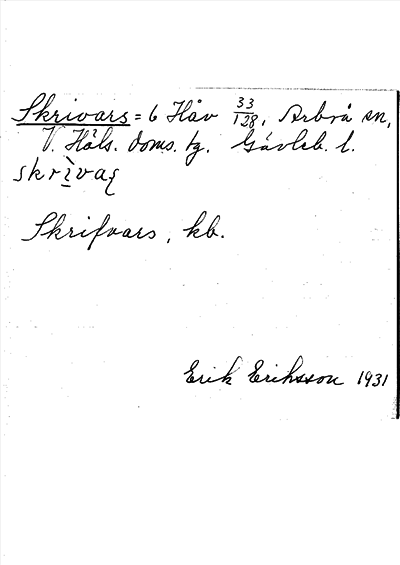 Skrivars = 6 Håv 33/128, Arbrå sn,
V. Häls. doms. tg. Gävleb. l.
skrìvaʂ
Skrifvars, kb.
Erik Eriksson 1931